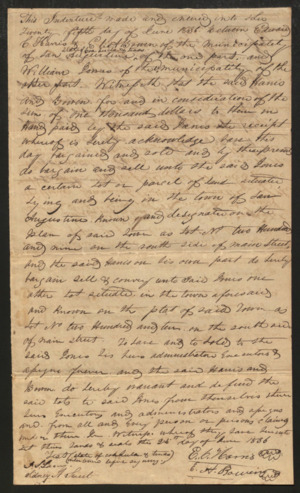 This Indenture made and entered into this
Twenty fifth day of June 1836 between Edward
C Harris & A Bowen of the municipality
of San Augustine of the one part and
William Jones of the municipality of the
other part. Witnesseth that the said Harris
and Bowen for and in consideration of the
sum of one thousand dollars to them in
hand paid by the said Jones the receipt
whereof is hereby acknowledge have this
day bargained and sold and by these presents
do bargain and sell unto the said Jones
a certain lot or parcel of land situate
lying and being in the town of San
Augustine known and designated on the
plan of said town as lot No two Hundred
and nine on the south side of main street,
and the said Harris on his own part do hereby
bargain sell & convey unto said Jones one
other lot situated in the town aforesaid
and known on the plat of said Town as
lot No two Hundred and on the south side
of main street To have and to hold to the
said Jones his heirs administrators executors &
assigns forever and the said Harris and
Bowen do hereby warrant and defend the
said lots to said Jones from themselves their
heirs Executors and administrators and assigns
and from all and every person or persons claiming
under them In Witness whereof they have hereunto
set their hands & seals the 25th day of June 1836
Test E. C. Harris
A. Bowen